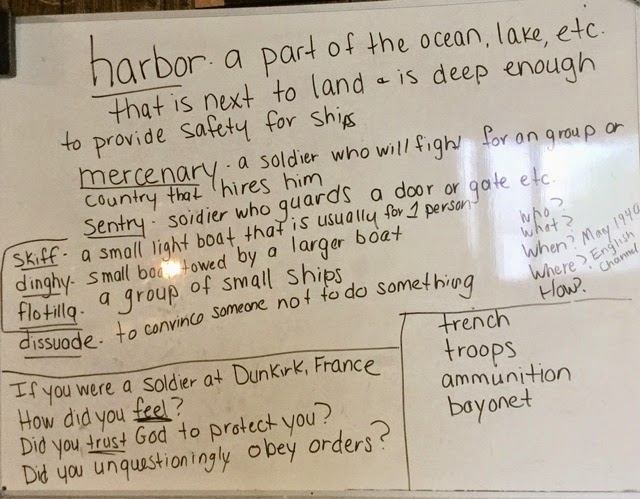 harbor - a part of the ocean, lake, etc.
that is next to land & is deep enough
to provide safety for ships
mercenary - a soldier who will fight for an group or
country that hires him
sentry - soldier who guards a door or gate etc.
skiff - a small light boat that is usually for 1 person
dinghy - small boat towed by a larger boat
flotilla - a group of small ships
dissuade - to convince someone not to do something
Who?
What?
When? May 1940
Where? English
Channel
How?
If you were a soldier at Dunkirk, France
How did you feel?
Did you trust God to protect you?
Did you unquestioningly obey orders?
trench
troops
ammunition
bayonet